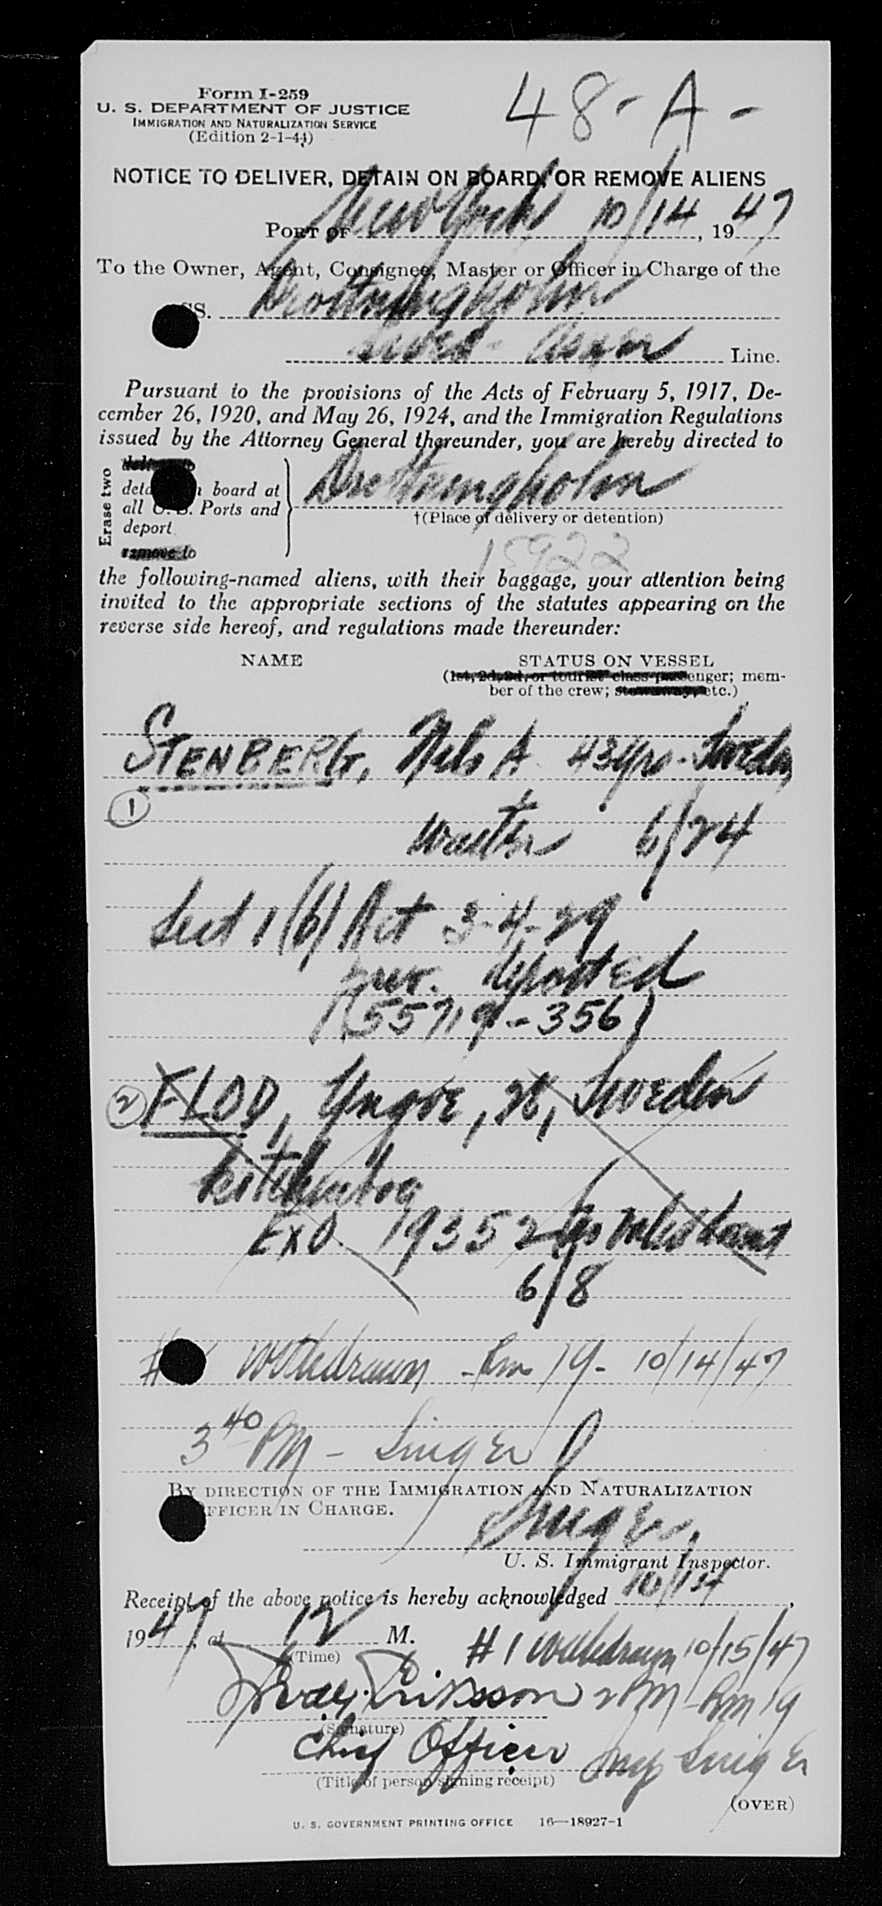 Form I-259
U. S. DEPARTMENT OF JUSTICE
IMMIGRATION AND NATURALIZATION SERVICE
(Edition 2-1-44)
48-A-
NOTICE TO DELIVER, DETAIN ON BOARD, OR REMOVE ALIENS
PORT OF New York 10/14, 1947
To the Owner, Agent, Consignee, Master or Officer in Charge of the
SS. Drottningholm
Swed- Amer Line.
Pursuant to the provisions of the Acts of February 5, 1917, De-
cember 26, 1920, and May 26, 1924, and the Immigration Regulations
issued by the Attorney General thereunder, you are hereby directed to
Erase two
board at
all U. S. Ports and
deport
remove to
Drottningholm
†(Place of delivery or detention)
15922
the following-named aliens, with their baggage, your attention being
invited to the appropriate sections of the statutes appearing on the
reverse side hereof, and regulations made thereunder:
NAME STATUS ON VESSEL
(1st, 2d, 3d, or tourist class passenger; mem-
ber of the crew; stowaway, etc.)
STENBERG, Nils A 43yrs - Sweden
1 waiter 6/24
Sect 1 (b) Act 3-4-29
prev. deported
(55719-356)
2 FLOD, Yngve, Sweden
Exo 19352
6/8
# withdrawn - Rm 19 - 10/14/47
3 40 PM - Singer
BY DIRECTION OF THE IMMIGRATION AND NATURALIZATION
OFFICER IN CHARGE.
Singer
U. S. Immigrant Inspector.
Receipt of the above notice is hereby acknowledged 10/14,
1947, at 12 M.
(Time)
# 1 withdrawn 10/15/47
Eriksson 2 PM - Rm 19
(Signature)
Chief Officer Insp Singer
(Title of person signing receipt)
(OVER)
U. S. GOVERNMENT PRINTING OFFICE 16—18927-1